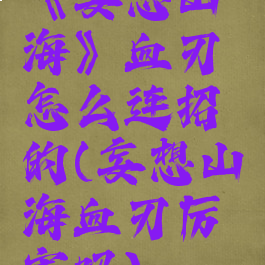 《妄想山
海》血刃
怎么连招
的(妄想山
海血刃厉
害吗)